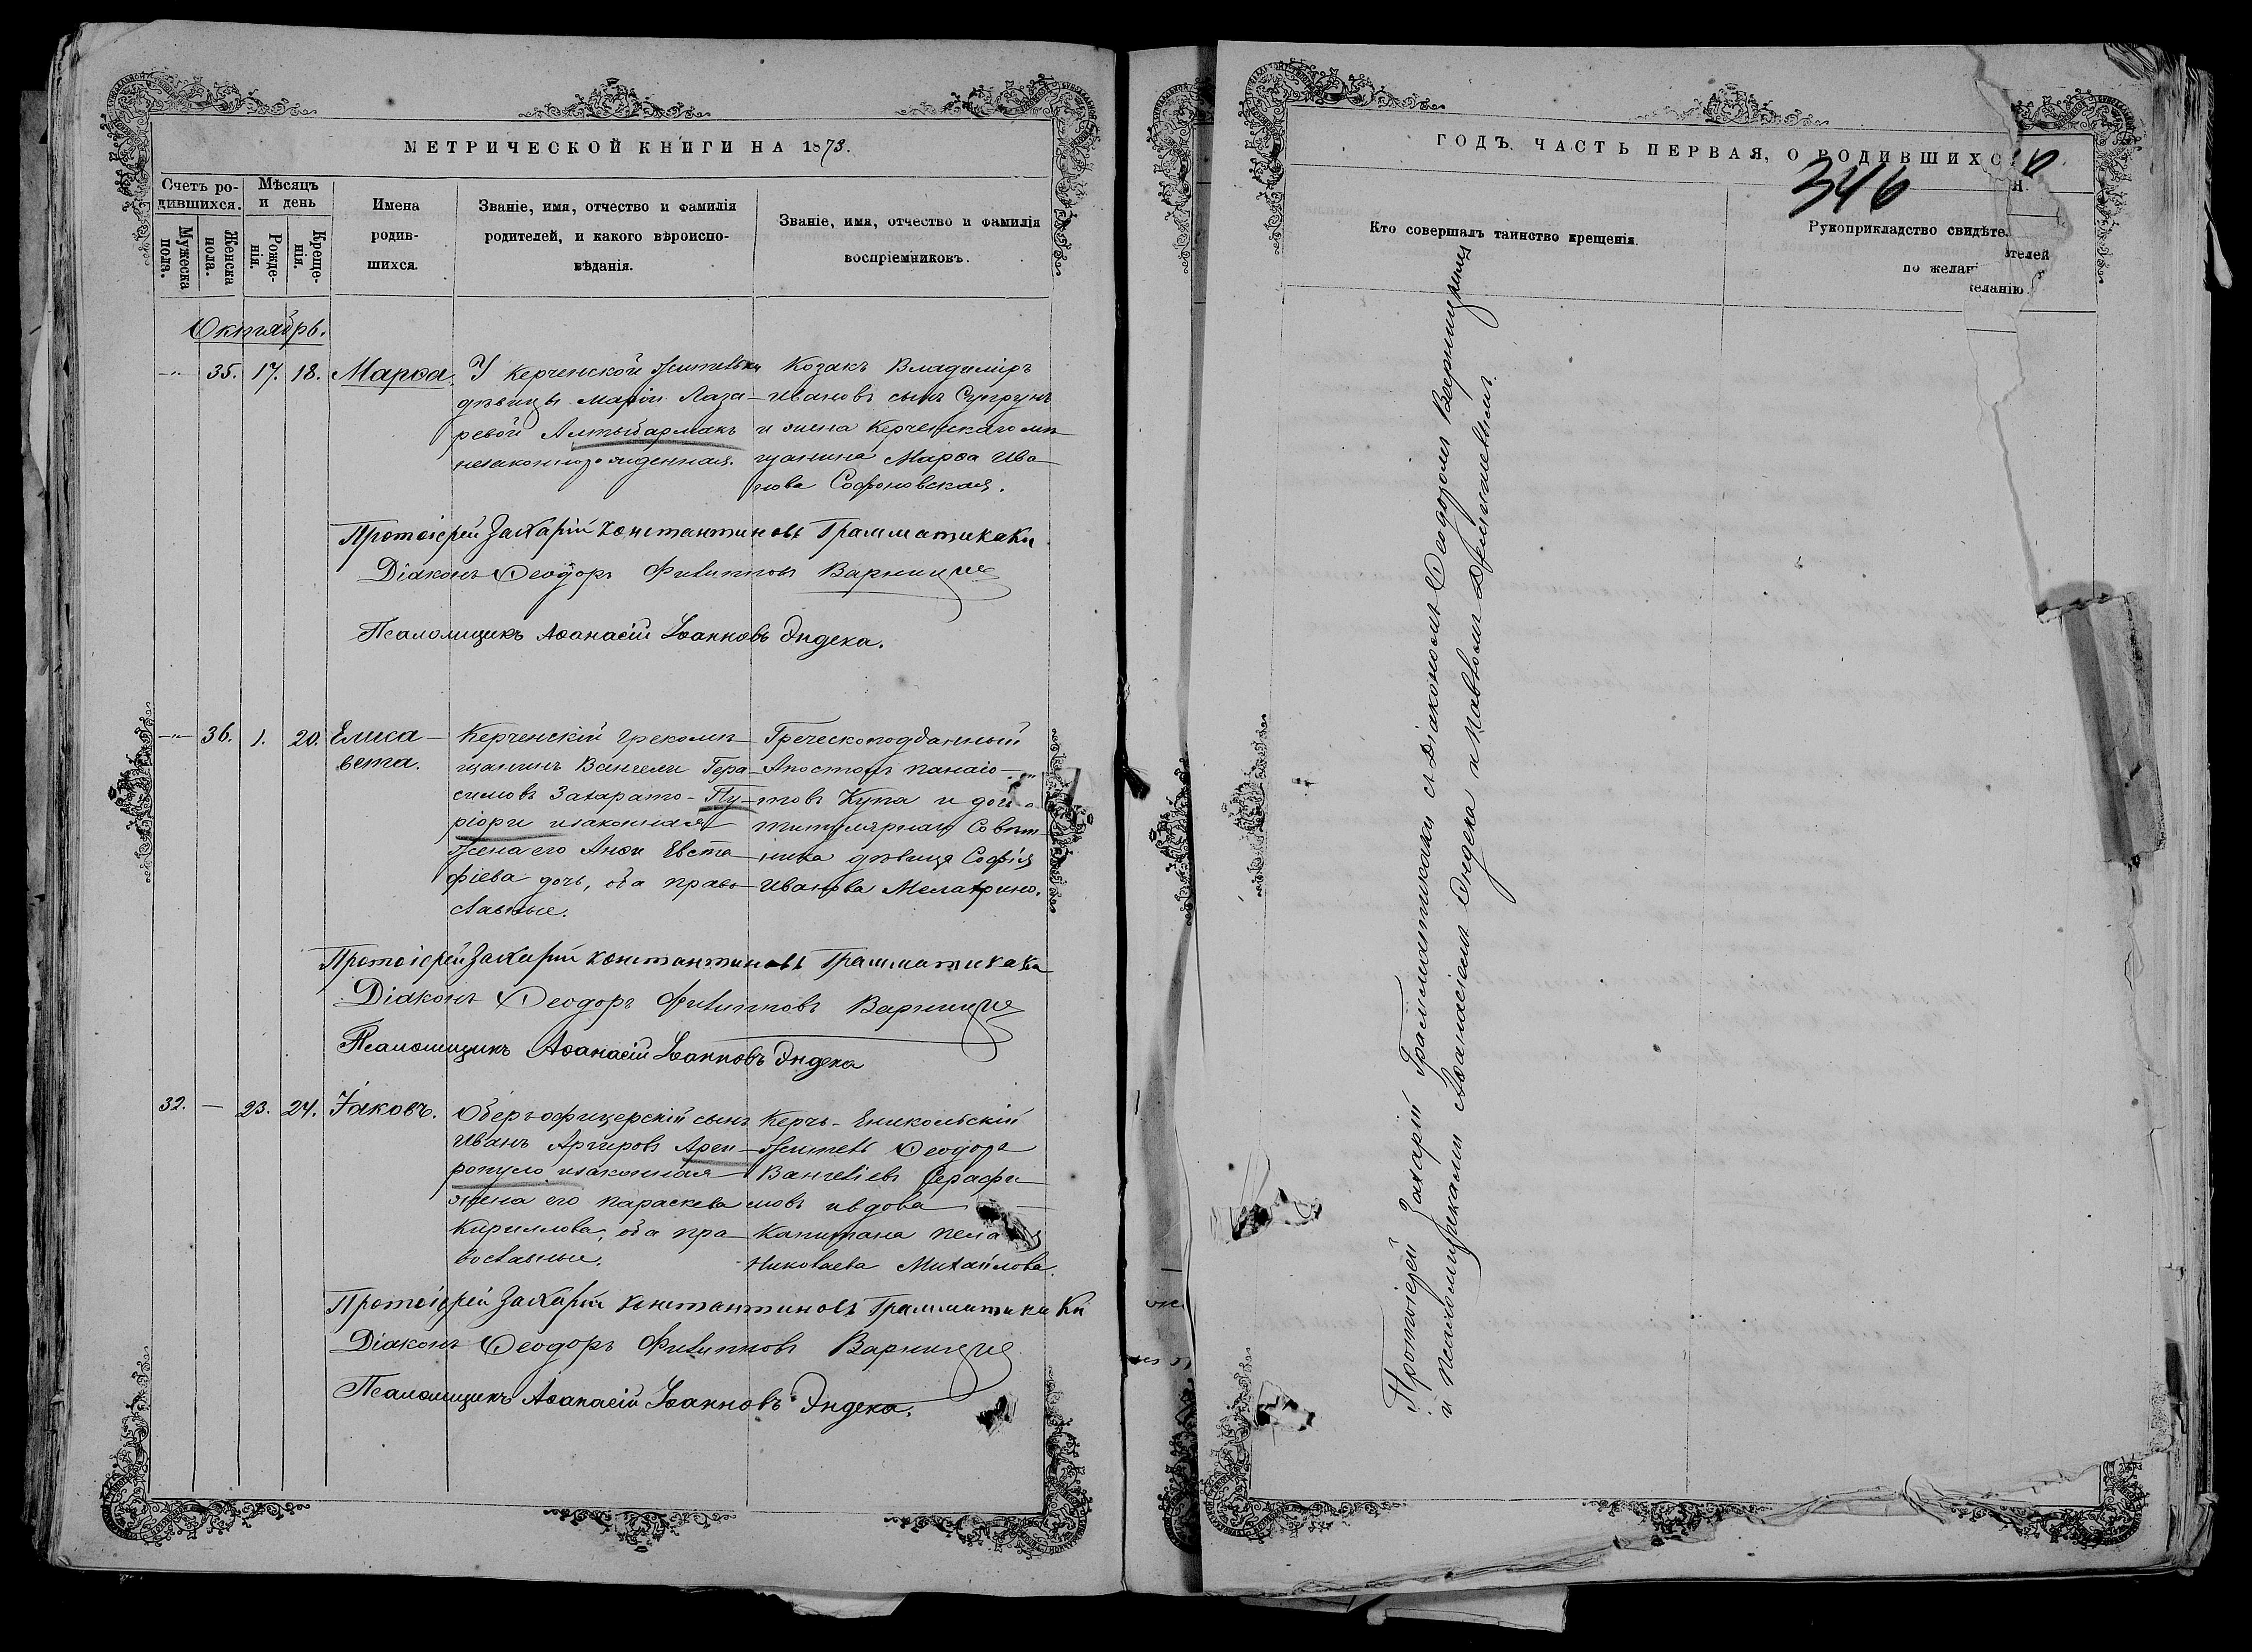 МЕТРИЧЕСКОЙ КНИГИ НА 1873.
Счетъ ро-
дившихся.
Мѣсяцъ
и день
Имена
родив-
шихся.
Званіе, имя, отчество и фамилія
родителей, и какого вѣроиспо-
вѣданія.
Званіе, имя, отчество и фамилія
воспріемниковъ.
Мужеска
пола.
Женска
пола.
Рожде-
нія.
Креще-
нія.
Октябрь.
35. 17. 18. Марѳа.
У Керченской жительки
дѣвицы Маріи Лаза-
ревой Алтыбармакъ
незаконнорожденная.
Козакъ Владиміръ
Ивановъ сынъ
и жена Керченскаго мѣ
щанина Марѳа Ива
нова Софроновская.
Протоіерей Захарій Константиновъ Грамматикаки
Діаконъ Ѳеодоръ Филипповъ
Псаломщикъ Аѳанасій Іоанновъ Эндека.
36. 1. 20. Елиса-
вета.
Керченскій грекомѣ-
щанинъ Вангели Гера-
симовъ Захарато-Пу-
риори и законная
жена его Анѳи Евста
фіева дочь, оба право
славные.
Греческоподданный
Апостолъ Панаіо-
товъ Купа и дочь
титулярнаго Совѣт
ника дѣвица Софія
Иванова Мелахрино.
Протоіерей Захарій Константиновъ Грамматикаки
Діаконъ Ѳеодоръ Филипповъ
Псаломщикъ Аѳанасій Іоанновъ Эндека
32. — 23. 24. Іаковъ.
Оберъ-офицерскій сынъ
Иванъ Аргировъ Арги-
ропуло и законная
жена его Параскева
Кириллова, оба пра
вославные.
Керчь-Еникольскій
житель Ѳеодоръ
Вангеліевъ Серафи
мовъ и вдова
Капитана Пела
Николаева Михайлова.
Протоіерей Захарій Константиновъ Грамматикаки
Діаконъ Ѳеодоръ Филипповъ
Псаломщикъ Аѳанасій Іоанновъ Эндека.
ГОДЪ, ЧАСТЬ ПЕРВАЯ, О РОДИВШИХС
Я.
346
Кто совершалъ таинство крещенія.
Рукоприкладство свидѣте
ѣтелей
по желан
еланію
Протоіерей Захарій Грамматикаки съ Діакономъ Ѳеодоромъ
и псаломщиками Аѳанасіемъ Эндека и Павломъ